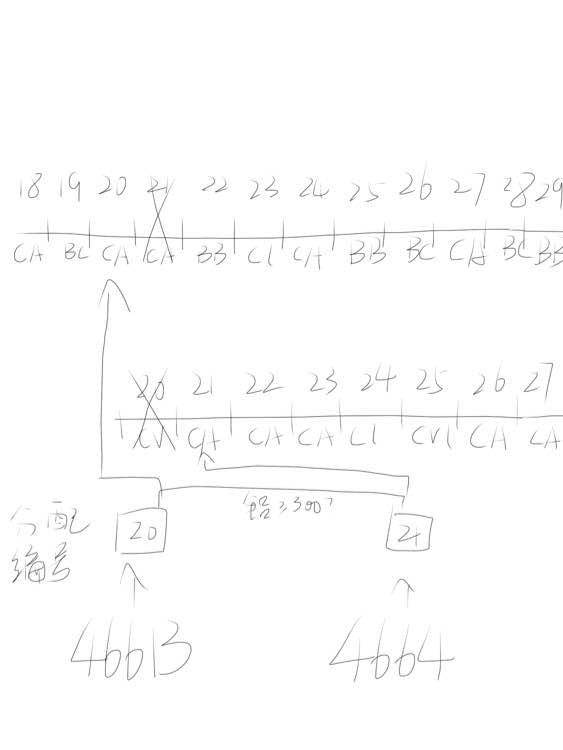 18 19 20 21 22 23 24 25 26 27 28 29
CA BC CA CA BB C1 CA BB BC CA BC BB
20 21 22 23 24 25 26 27
CV CA CA CA C1 CV1 CA CA
分配 20 21
编号
46613 4664